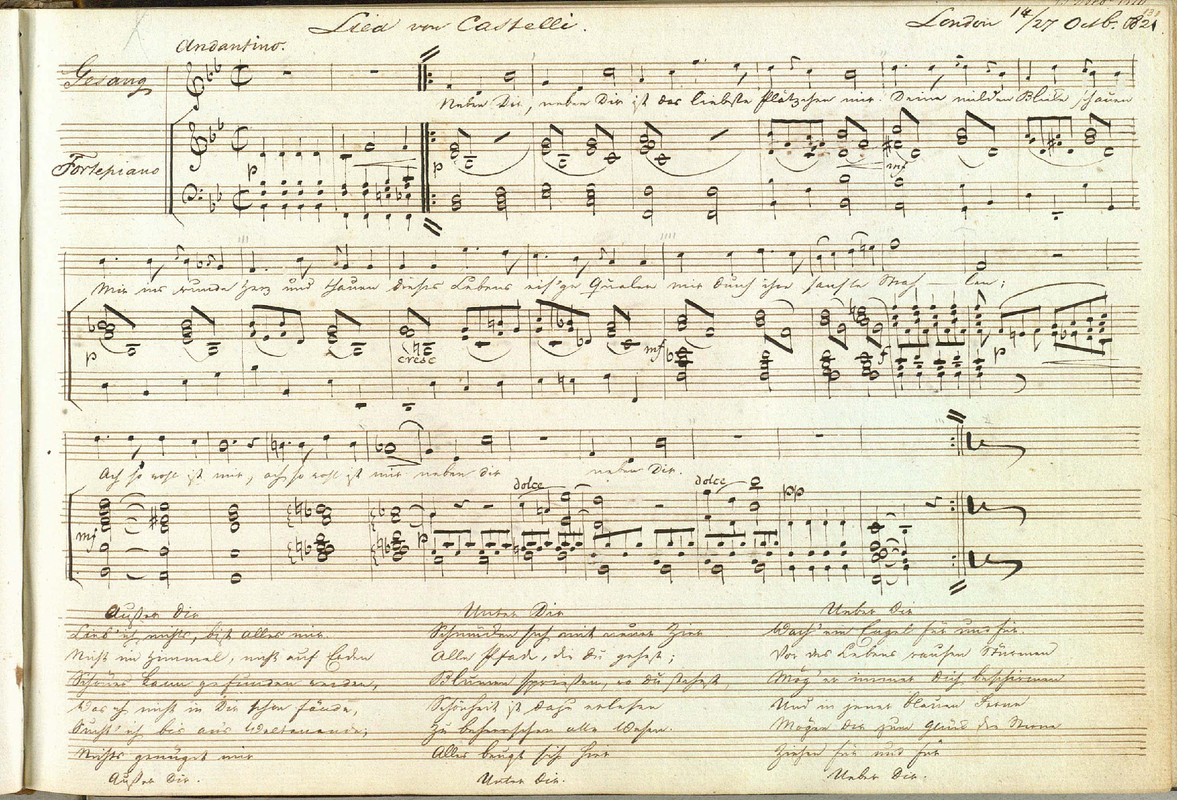 Lied von Castelli.
London 14/27 Octb. 1821.
Andantino.
Gesang
Neben Dir, neben Dir ist das liebste Plätzchen mir. Deine milden Blicke schauen
Fortepiano
p p mf
Mir ins wunde Herz und thauen dieses Lebens eis'ge Qualen mir durch ihre sanfte Strah- len;
p cresc mf f p
Ach so wohl ist mir, ach so wohl ist mir neben dir neben Dir.
dolce dolce pp
mf p
Außer Dir
Lieb' ich nichts, bist alles mir.
Nichts im Himmel, nichts auf Erden
Schönes kann gefunden werden,
Das ich nicht in Dir schon fände,
Sucht' ich bis ans Weltenende;
Nichts genüget mir
Außer Dir.
Unter Dir
Schmücken sich mit neuer Zier
Alle Pfade, die Du gehest;
Blumen sprießen, wo Du stehest,
Schönheit ist dazu erlesen
Zu beherrschen alle Wesen.
Alles beugt sich hier
Unter Dir.
Ueber Dir
Wach' ein Engel für und für.
Vor des Lebens rauhen Stürmen
Mög' er immer Dich beschirmen
Und in jener blauen Ferne
Mögen Dir zum Glück die Sterne
Ziehen für und für
Ueber Dir.